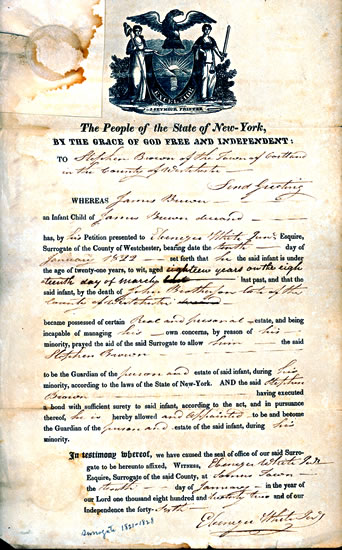 EXCELSIOR
J. SEYMOUR, PRINTER.
The People of the State of New-York,
BY THE GRACE OF GOD FREE AND INDEPENDENT:
TO Stephen Brown of the Town of Cortland
in the County of Westchester
Send Greeting
WHEREAS James Brown
an Infant Child of James Brown deceased
has, by his Petition presented to Ebenezer White Junr. Esquire,
Surrogate of the County of Westchester, bearing date the tenth day of
January 1822 set forth that he the said infant is under
the age of twenty-one years, to wit, aged eighteen years on the eigh
teenth day of march last past, and that the
said infant, by the death of John late of the
County of Westchester
became possessed of certain Real and personal estate, and being
incapable of managing his own concerns, by reason of his
minority, prayed the aid of the said Surrogate to allow him the said
Stephen Brown
to be the Guardian of the person and estate of said infant, during his
minority, according to the laws of the State of New-York. AND the said Stephen
Brown having executed
a bond with sufficient surety to said infant, according to the act, and in pursuance
thereof, he is hereby allowed and appointed to be and become
the Guardian of the person and estate of the said infant, during his
minority.
In testimony whereof, we have caused the seal of office of our said Surro-
gate to be hereunto affixed, WITNESS, Ebenezer White Junr.
Esquire, Surrogate of the said County, at Somers Town
the tenth day of January in the year of
our Lord one thousand eight hundred and twenty two and of our
Independence the forty-Sixth
Ebenezer White Junr
Surrogate 1821-1828